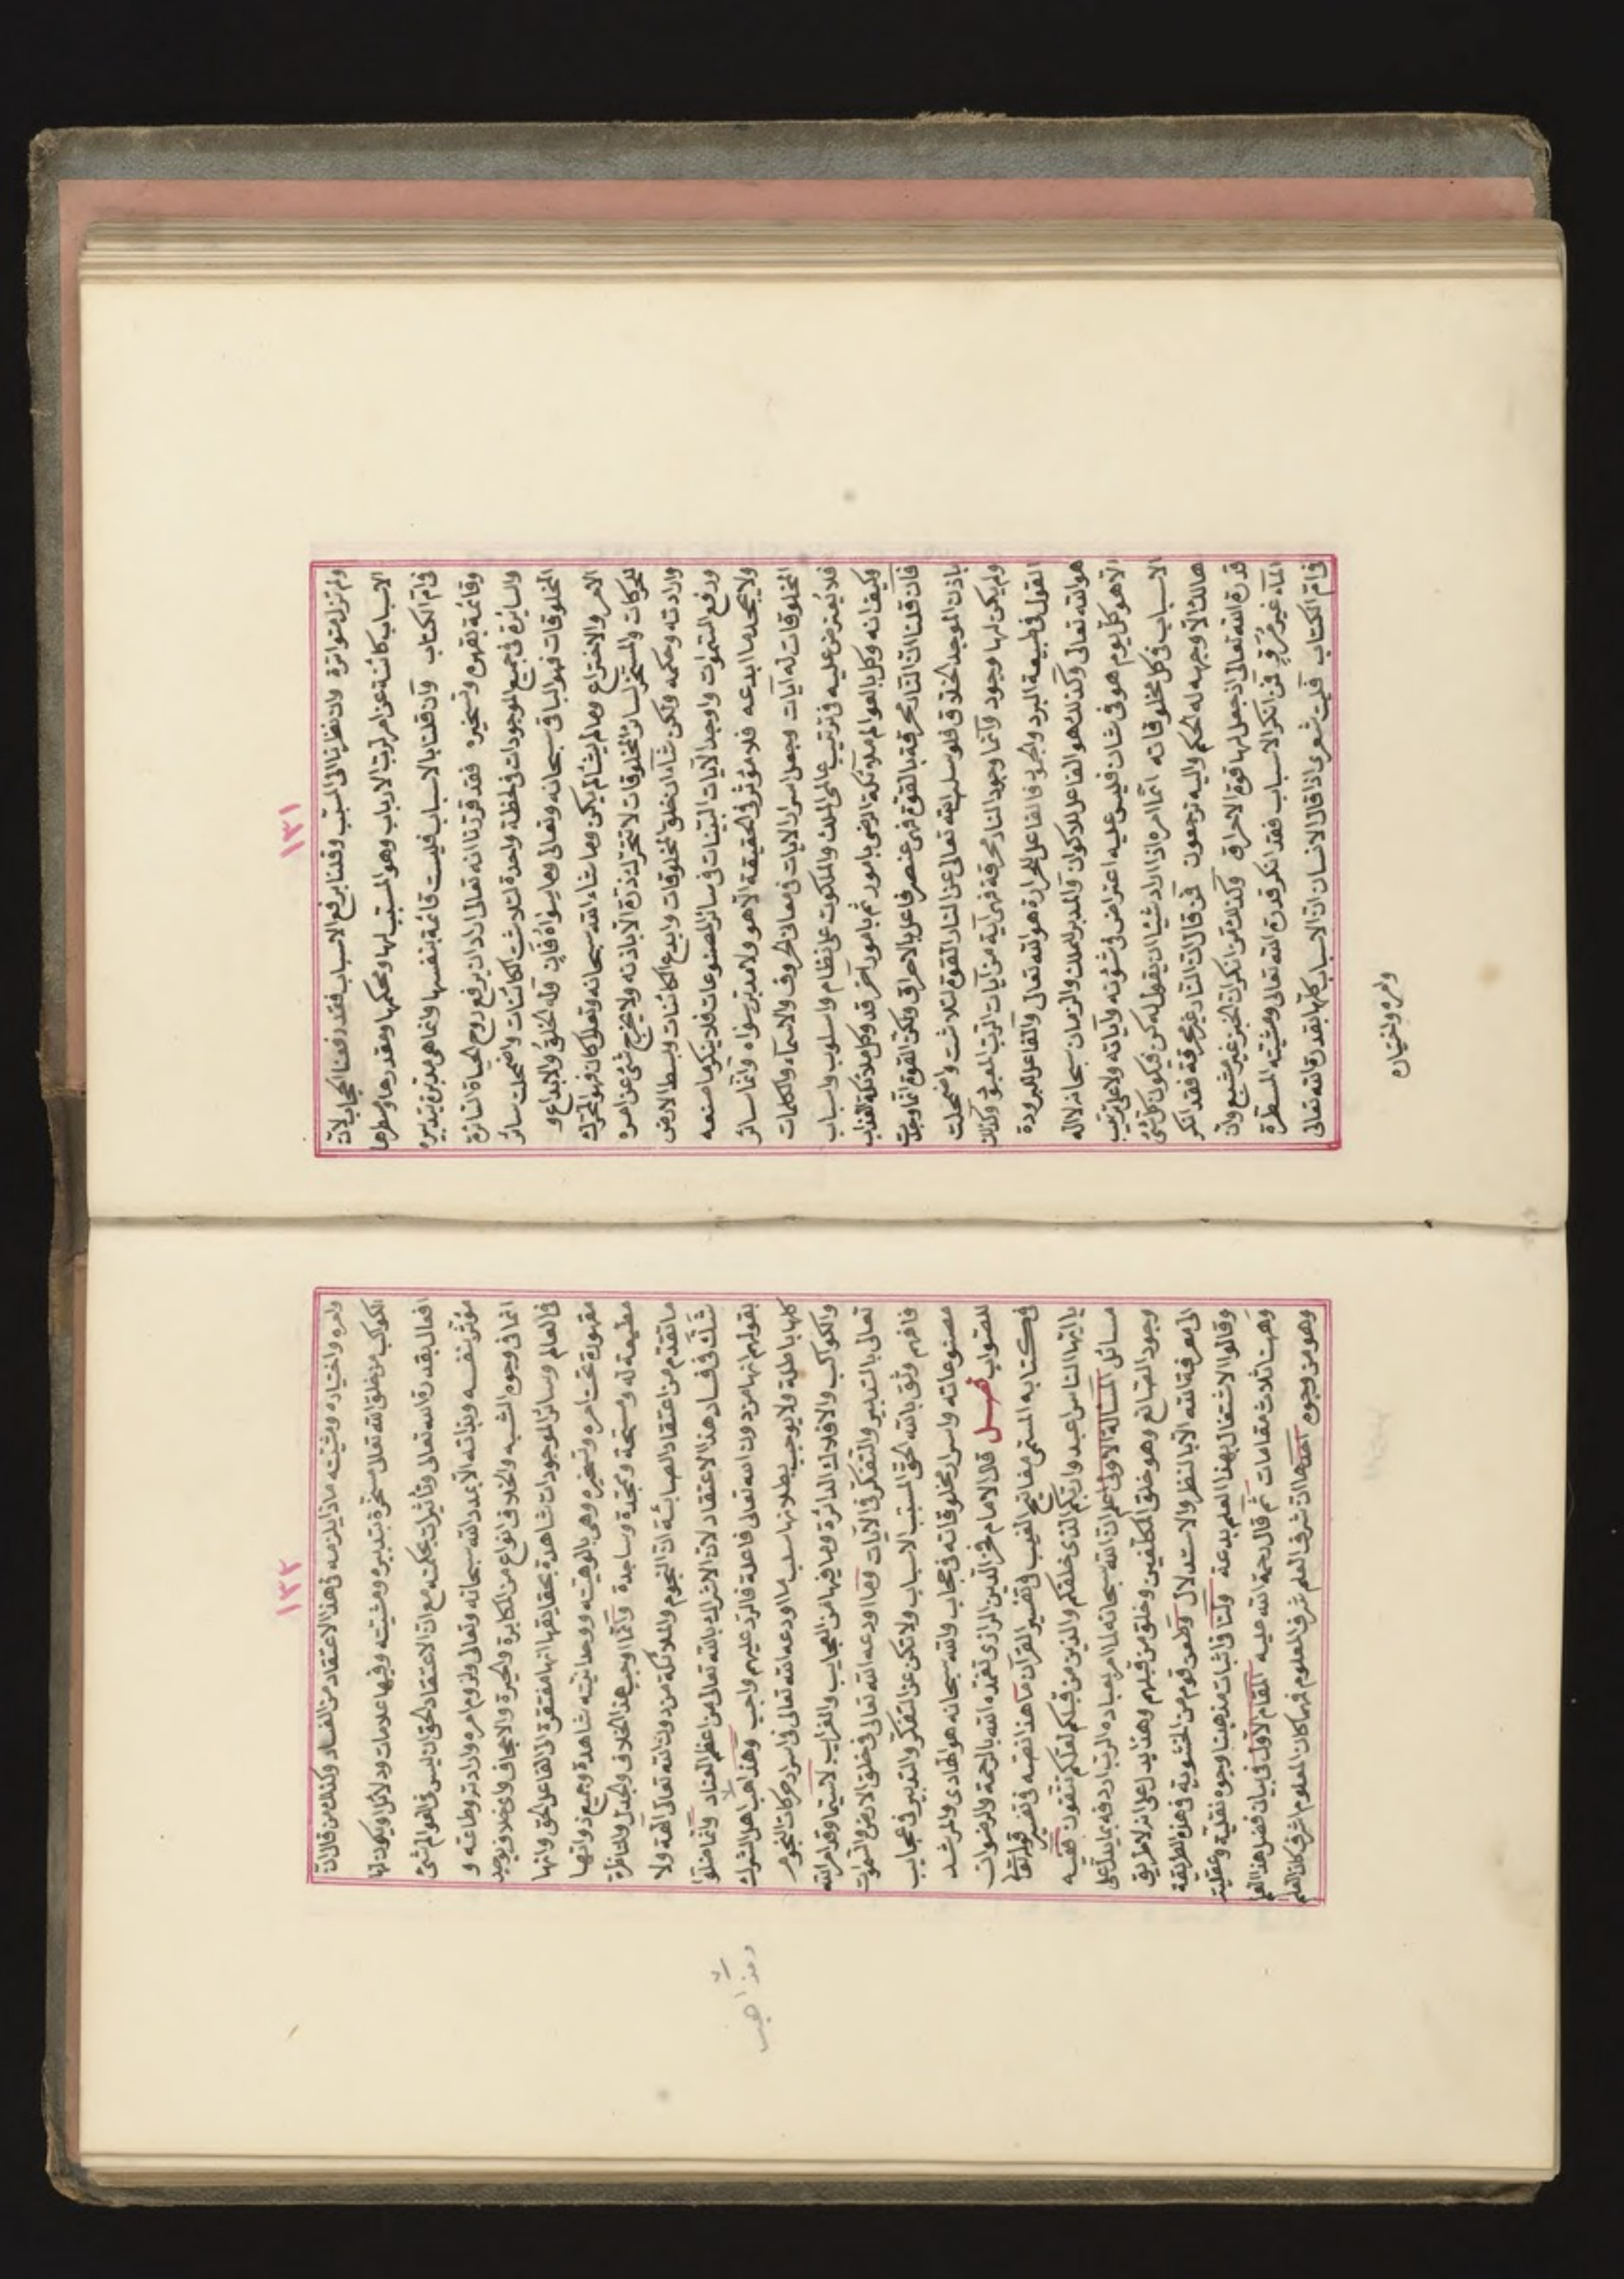 ١٣١
ولم تزل متواترة وان نظرنا الى المسبب وقلنا برفع الاسباب فقد رفعنا الحجاب لان
الاسباب كائنة عن امر رب الارباب وهو المسبب لها ومحكمها ومقدرها ومسطرها
فى ام الكتاب وان قلنا بالاسباب فليست قائمة بنفسها وانما هى مدبرة بتدبيره
وقائمة بقهره وتسخيره فقد قررنا انه تعالى اذا اراد ان يرفع روح الحياة السائرة
والسايرة فى جميع الموجودات فى لحظة واحدة لتلاشت الكائنات واضمحلت سائر
المخلوقات فهو الباقى سبحانه وتعالى وما سواه فان وله الخلق والابداع و
الامر والاختراع وما لم يشا لم يكن وما شاء الله سبحانه وتعالى كان فهو المحرك
للحركات والمسخر لسائر المخلوقات لا تتحرك ذرة الا باذنه ولا يخرج شئ عن امره
وارادته وحكمه ولكن شاء ان خلق المخلوقات وابدع الكائنات وبسط الارض
ورفع السموات واوجد الآيات البينات فى سائر المصنوعات فلا ينكر ما صنعه
ولا يجحد ما ابدعه فلا مؤثر فى الحقيقة الا هو ولا مدبر سواه وانما سائر
المخلوقات له آيات وجعل اسرار الايات فى معانى الحروف والاسماء والكلمات
فلا يعترض عليه فى ترتيب عالمى الملك والملكوت على نظام واسلوب واسباب
وكيف انه وكل بالعوالم ملائكة الرضى بامور ثم بامور آخر قد وكل ملائكة العذاب
فان قلنا ان النار محرقة بالقوة فهى عنصر فاعل بالاحراق ولكن القوة انما وجدت
باذن الموجد الخلاق فلو سلب الله تعالى عن النار القوة لتلاشت واضمحلت
ولم يكن لها وجود وانما وجود النار محرقة فهى آية من آيات الرب المعبود وكذلك
القول فى طبيعة البرد والحر فالفاعل للحرارة هو الله تعالى والفاعل للبرودة
هو الله تعالى وكذلك هو الفاعل للاكوان والمدبر للملك والزمان سبحانه لا اله
الا هو كل يوم هو فى شان فليس عليه اعتراض فى شؤنه وآياته ولا على ترتيب
الاسباب فى كل مخلوقاته انما امره اذا اراد شيئا ان يقول له كن فيكون كل شئ
هالك الا وجهه له الحكم واليه ترجعون فمن قال ان النار غير محرقة فقد انكر
قدرة الله تعالى اذ جعل لها قوة الاحراق وكذلك من انكر ان الخبز غير مشبع وان
الماء غير مُرْوٍ فمن انكر الاسباب فقد انكر قدرة الله تعالى ومشيته المسطرة
فى ام الكتاب فليت شعرى اذا قال الانسان ان الاسباب كلها بقدرة الله تعالى
وامره واختياره
١٣٢
وامره واختياره ومشيته ماذا يلزمه فى هذا الاعتقاد من الفساد وكذلك من قال ان
الكواكب من خلق الله تعالى مسخرة بتدبيره ومشيته وفيها علامات ودلائل ويكون لها
افعال بقدرة الله تعالى وتأثيرات بحكمته مع ان الاعتقاد الحق ان ليس فى العوالم شئ
مؤثر بنفسه وبذاته الا بمدد الله سبحانه وتعالى ولزوم امره وارادته وطاعته و
انما فى وجوه الشبه والخلاف انواع من المكابرة والحيرة والاجحاف واى خلاف يوجد
فى العالم وسائر الموجودات شاهدة بحقايقها انها مفتقرة الى الفاعل الحق وانها
مقهورة تحت امره وتسخيره وهى بالوهيته ووحدانيته شاهدة وجميع ذواتها
مطيعة له ومسبحة وممجدة وساجدة وانما اوجب هذا الخلاف والجدل والمناظرة
ما تقدم من اعتقاد الصابئة ان النجوم والملائكة من دون الله تعالى آلهة ولا
شك فى فساد هذا الاعتقاد لان الاشراك بالله تعالى من اعظم العناد وانما ضلوا
بقولهم انها من دون الله تعالى فاعلة فالرد عليهم واجب وهذاهب اهل الشرك
كلها باطلة ولا يوجب بطلانها سلب ما اودعه الله تعالى فى اسرار حركات النجوم
والكواكب والافلاك الدائرة وما فيها من العجايب والغرايب لاسيما وقد امر الله
تعالى بالتدبير والتفكر فى الآيات وما اودعه الله تعالى فى خلق الارض والسموات
فافهم وثق بالله الحق المسبب الاسباب ولا تكن عن التفكر والتدبير فى عجايب
مصنوعاته واسرار مخلوقاته فى حجاب والله سبحانه هو الهادى والمرشد
للصواب فصل قال الامام فخر الدين الرازى تغمده الله بالرحمة والرضوان
فى كتابه المسمى مفاتيح الغيب فى تفسير القرآن ما هذا نصه فى تفسير قوله تعالى
يا ايها الناس اعبدوا ربكم الذى خلقكم والذين من قبلكم لعلكم تتقون ففيه
مسائل المسألة الاولى اعلم ان الله سبحانه لما امر بعباده الرب اردفه بما يدل على
وجود الصانع وهو خلق المكلفين وخلق من قبلهم وهذا يدل على انه لا طريق
الى معرفة الله الا بالنظر والاستدلال وطعن قوم من الحشوية فى هذه الطريقة
وقالوا الاشتغال بهذا العلم بدعة ولنا فى اثبات مذهبنا وجوه نقلية وعقلية
وههنا ثلاث مقامات ثم قال رحمة الله عليه المقام الاول فى بيان فضل هذا العلم
وهو من وجوه احدها ان شرف العلم شرف المعلوم فمهما كان المعلوم اشرف كان العلم
ومذاهب